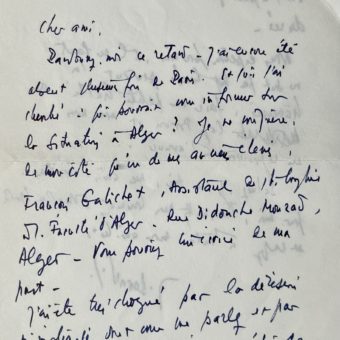 Cher ami,
Pardonnez-moi ce retard - j'ai encore été
absent plusieurs fois de Paris. Et puis j'ai
cherché : qui pourrait vous informer sur
la situation à Alger ? Je ne
de mon côté qu'un de mes anciens élèves,
François Galichet, Assistant de philosophie
Fr. Faculté d'Alger - Rue Didouche Mourad,
Alger - Vous pouvez lui écrire de ma
part -
J'ai été très choqué par la décision
dont vous me parlez et par